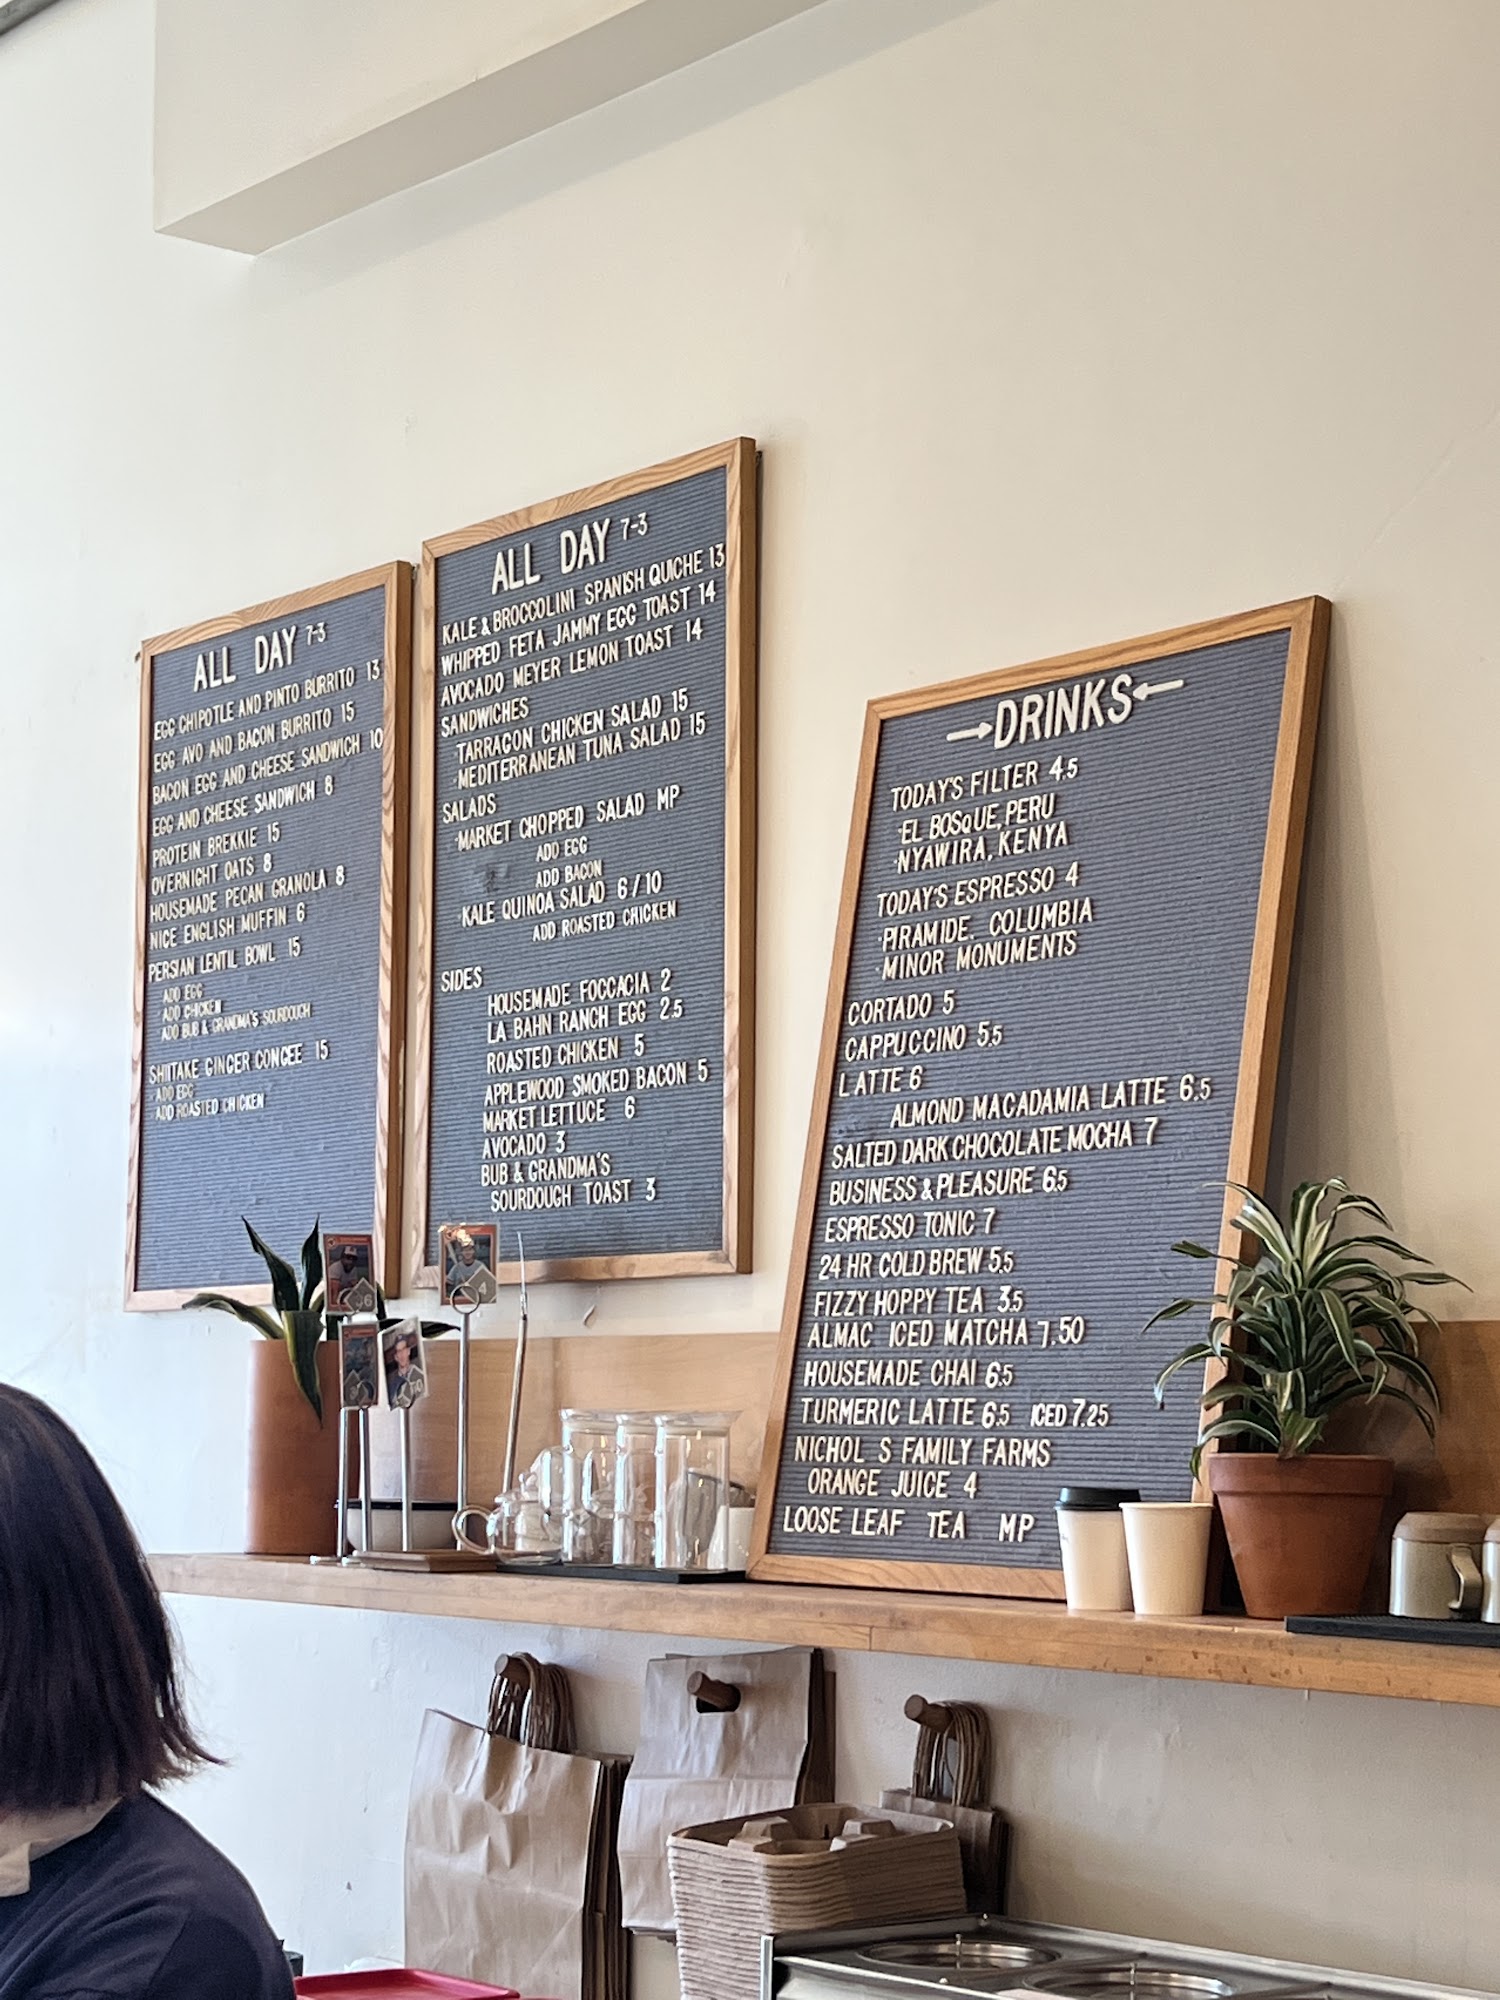 ALL DAY 7-3
EGG CHIPOTLE AND PINTO BURRITO 13
EGG AVO AND BACON BURRITO 15
BACON EGG AND CHEESE SANDWICH 10
EGG AND CHEESE SANDWICH 8
PROTEIN BREKKIE 15
OVERNIGHT OATS 8
HOUSEMADE PECAN GRANOLA 8
NICE ENGLISH MUFFIN 6
PERSIAN LENTIL BOWL 15
ADD EGG
ADD CHICKEN
ADD BUB & GRANDMA'S SOURDOUGH
SHIITAKE GINGER CONGEE 15
-ADD EGG
ADD ROASTED CHICKEN
ALL DAY 7-3
KALE & BROCCOLINI SPANISH QUICHE 13
WHIPPED FETA JAMMY EGG TOAST 14
AVOCADO MEYER LEMON TOAST 14
SANDWICHES
-TARRAGON CHICKEN SALAD 15
-MEDITERRANEAN TUNA SALAD 15
SALADS
-MARKET CHOPPED SALAD MP
ADD EGG
ADD BACON
-KALE QUINOA SALAD 6/10
ADD ROASTED CHICKEN
SIDES
HOUSEMADE FOCCACIA 2
LA BAHN RANCH EGG 2.5
ROASTED CHICKEN 5
APPLEWOOD SMOKED BACON 5
MARKET LETTUCE 6
AVOCADO 3
BUB & GRANDMA'S
SOURDOUGH TOAST 3
→DRINKS←
TODAY'S FILTER 4.5
·EL BOSQUE, PERU
·NYAWIRA, KENYA
TODAY'S ESPRESSO 4
·PIRAMIDE. COLUMBIA
·MINOR MONUMENTS
CORTADO 5
CAPPUCCINO 5.5
LATTE 6
ALMOND MACADAMIA LATTE 6.5
SALTED DARK CHOCOLATE MOCHA 7
BUSINESS & PLEASURE 6.5
ESPRESSO TONIC 7
24 HR COLD BREW 5.5
FIZZY HOPPY TEA 3.5
ALMAC ICED MATCHA 7.50
HOUSEMADE CHAI 6.5
TURMERIC LATTE 6.5 ICED 7.25
NICHOL S FAMILY FARMS
ORANGE JUICE 4
LOOSE LEAF TEA MP